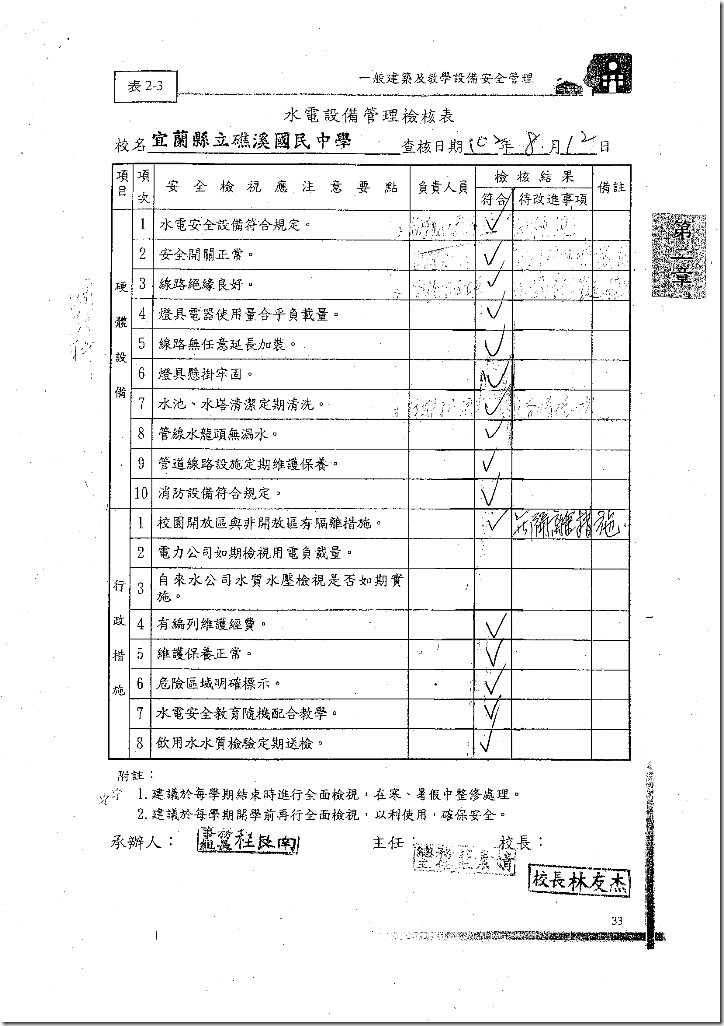 表 2-3
一般建築及教學設備安全管理
水電設備管理檢核表
校名 宜蘭縣立礁溪國民中學 查核日期 102 年 8 月 12 日
項目 項次 安全檢視應注意要點 負責人員 檢核結果 備註
符合 待改進事項
硬體設備
1 水電安全設備符合規定。 ✓
2 安全開關正常。 ✓
3 線路絕緣良好。 ✓
4 燈具電器使用量合乎負載量。 ✓
5 線路無任意延長加裝。 ✓
6 燈具懸掛牢固。 ✓
7 水池、水塔清潔定期清洗。 ✓
8 管線水龍頭無漏水。 ✓
9 管道線路設施定期維護保養。 ✓
10 消防設備符合規定。 ✓
行政措施
1 校園開放區與非開放區有隔離措施。 ✓ 隔離措施
2 電力公司如期檢視用電負載量。
3 自來水公司水質水壓檢視是否如期實
施。
4 有編列維護經費。 ✓
5 維護保養正常。 ✓
6 危險區域明確標示。 ✓
7 水電安全教育隨機配合教學。 ✓
8 飲用水水質檢驗定期送檢。 ✓
第二章
附註：
1.建議於每學期結束時進行全面檢視，在寒、暑假中整修處理。
2.建議於每學期開學前再行全面檢視，以利使用，確保安全。
承辦人： 程良南 主任： 校長：
校長林友杰
33